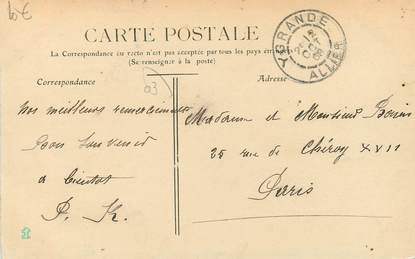 10€
CARTE POSTALE
La Correspondance au recto n'est pas acceptée par tous les pays
(Se renseigner à la poste)
YGRANDE
ALLIER
Correspondance
Adresse
03
Nos meilleurs remerciements
Bon Souvenir
a bientot
P. K.
Madame et Monsieur
25 rue de Chéroy XVII
Paris